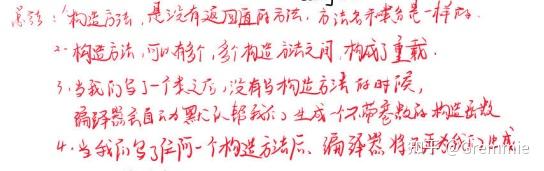 总结：1.构造方法，是没有返回值的方法，方法名和类名是一样的.
2.构造方法，可以有多个，多个构造方法之间，构成了重载.
3.当我们写了一个类之后，没有写构造方法的时候，
编译器会自动默认帮我们生成一个不带参数的构造函数
4.当我们写了任何一个构造方法后、编译器将不再为我们生成
知乎 @Gremmie